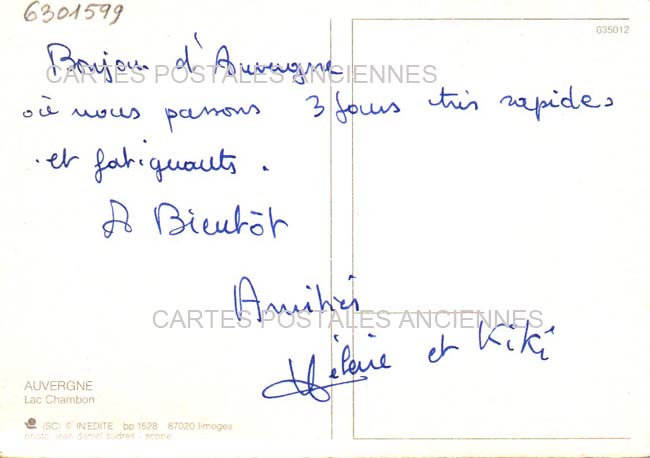 6301599
635012
Bonjour d'Auvergne
CARTES POSTALES ANCIENNES
où nous passons 3 jours très rapides
et fatiguants.
A Bientôt
Amitiés
CARTES POSTALES ANCIENNES
Hélène et Kiki
AUVERGNE
Lac Chambon
(SC) © INEDITE bp 1528 87020 limoges
photo jean daniel sudres - scope